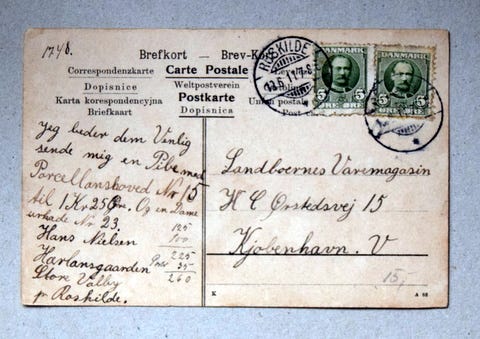 1748.
Brefkort - Brev-K
Correspondenzkarte Carte Postale
Dopisnice Weltpostverein
Karta korespondencyjna Postkarte Union postale
Briefkaart Dopisnica Post
ROSKILDE
DANMARK
5 ØRE 5
DANMARK
5 ØRE 5
Jeg beder dem Venlig
sende mig en Pibe med
Porcellanshoved Nr 15
til 1 Kr. 25 Øre. Og en Dame
urkæde Nr 23. 125
Hans Nielsen 100
Harlansgaarden 225
Store Valby Porto 35
pr Roskilde. 260
Landboernes Varemagasin
H C Ørstedsvej 15
Kjøbenhavn. V
15,-
K
A 88